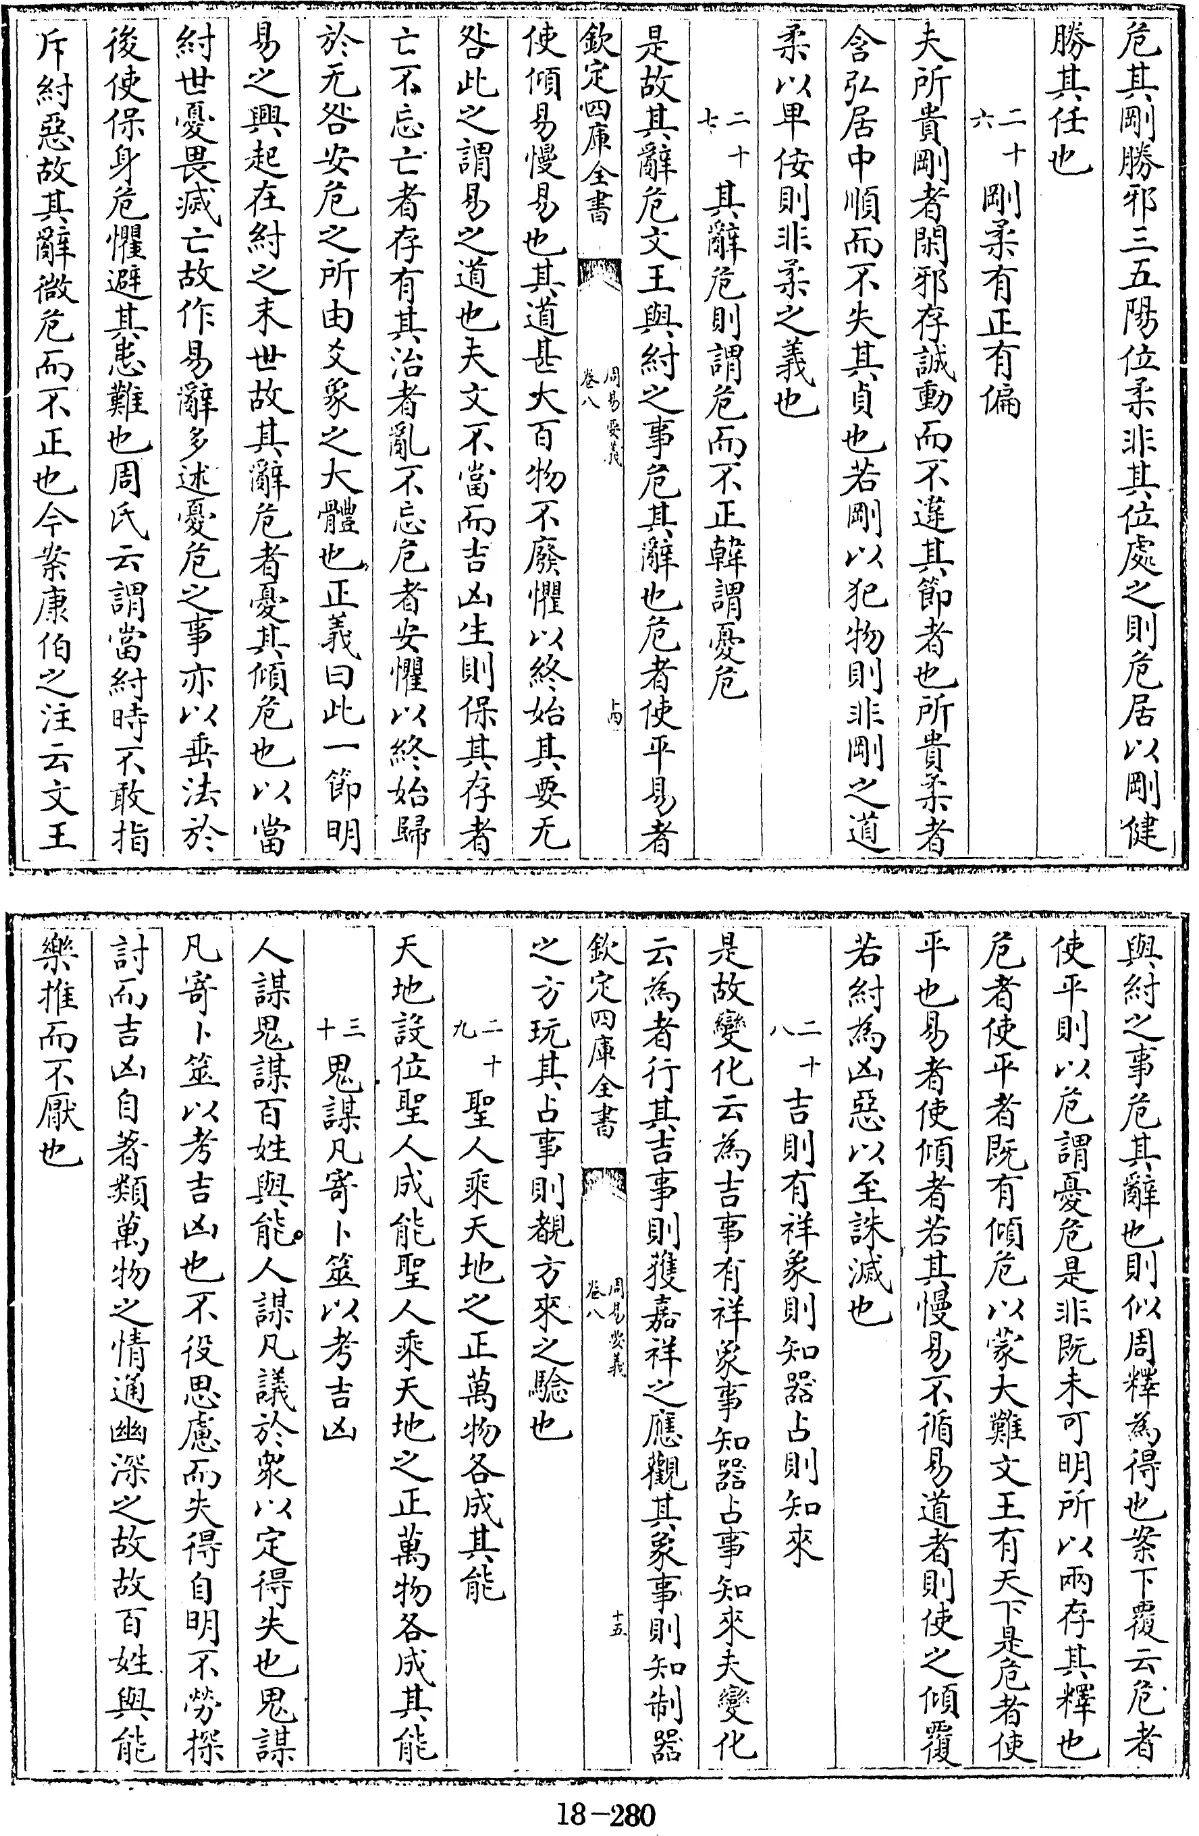 危其剛勝邪三五陽位柔非其位處之則危居以剛健
勝其任也
二十六　剛柔有正有偏
夫所貴剛者閑邪存誠動而不違其節者也所貴柔者
含弘居中順而不失其貞也若剛以犯物則非剛之道
柔以卑佞則非柔之義也
二十七　其辭危則謂危而不正韓謂憂危
是故其辭危文王與紂之事危其辭也危者使平易者
欽定四庫全書　周易要義卷八　十四
使傾易慢易也其道甚大百物不廢懼以終始其要无
咎此之謂易之道也夫文不當而吉凶生則保其存者
亡不忘亡者存有其治者亂不忘危者安懼以終始歸
於无咎安危之所由爻象之大體也正義曰此一節明
易之興起在紂之末世故其辭危者憂其傾危也以當
紂世憂畏滅亡故作易辭多述憂危之事亦以垂法於
後使保身危懼避其患難也周氏云謂當紂時不敢指
斥紂惡故其辭微危而不正也今案康伯之注云文王
與紂之事危其辭也則似周釋為得也案下覆云危者
使平則以危謂憂危是非既未可明所以兩存其釋也
危者使平者既有傾危以蒙大難文王有天下是危者使
平也易者使傾者若其慢易不循易道者則使之傾覆
若紂為凶惡以至誅滅也
二十八　吉則有祥象則知器占則知來
是故變化云為吉事有祥象事知器占事知來夫變化
云為者行其吉事則獲嘉祥之應觀其象事則知制器
欽定四庫全書　周易要義卷八　十五
之方玩其占事則覩方來之驗也
二十九　聖人乘天地之正萬物各成其能
天地設位聖人成能聖人乘天地之正萬物各成其能
三十　鬼謀凡寄卜筮以考吉凶
人謀鬼謀百姓與能人謀凡議於衆以定得失也鬼謀
凡寄卜筮以考吉凶也不役思慮而失得自明不勞探
討而吉凶自著類萬物之情通幽深之故故百姓與能
樂推而不厭也
18-280